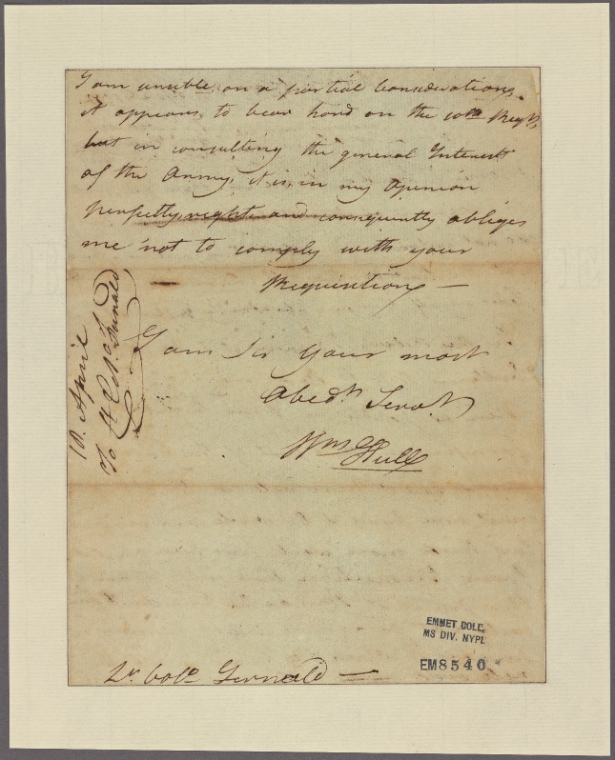 I am sensible, on a partial Consideration,
it appears, to bear hard on the 10th Regt,
but in consulting the general Interest
of the Army, it is, in my Opinion
perfectly right and consequently obliges
me not to comply with your
Requisition —
I am Sir Your most
Obedt. Servt.
Wm Hull
10 April
To Lt Colo.
Lt. Colo. Fernald —
EMMET COLL.
MS DIV. NYPL
EM8540